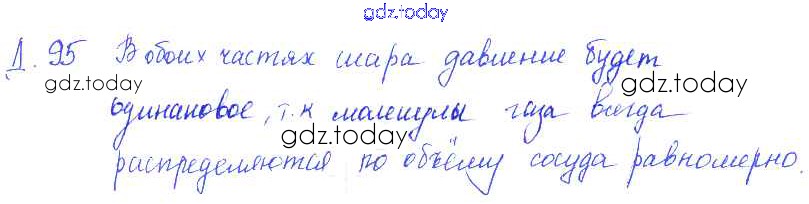 gdz.today
Д. 95 В обоих частях шара давление будет
gdz.today
gdz.today
одинаковое, т.к молекулы газа всегда
gdz.today
распределяются по объёму сосуда равномерно.